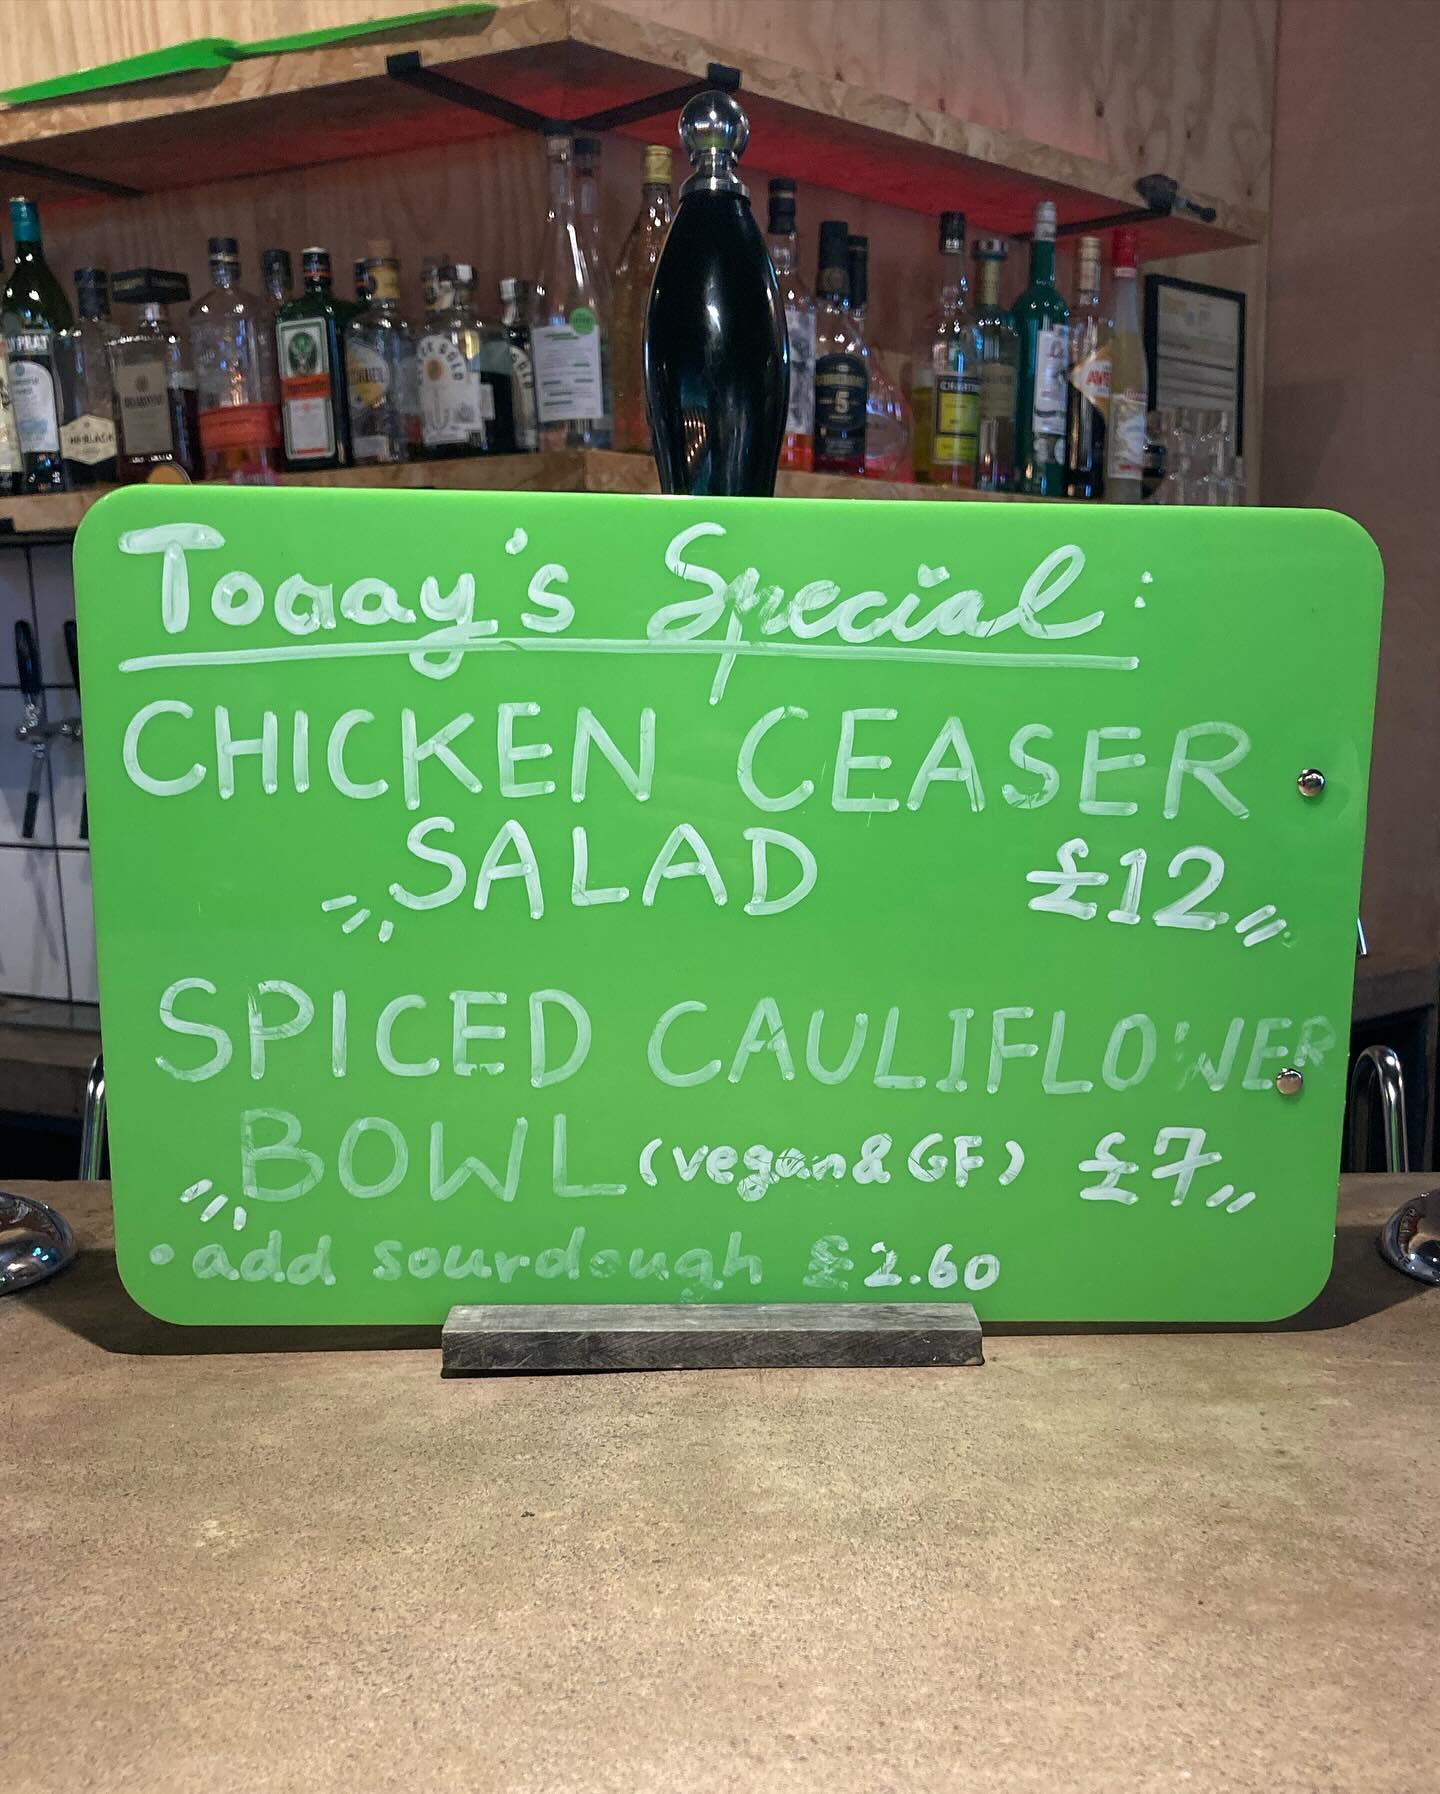 Today's Special:
CHICKEN CEASER
SALAD £12
SPICED CAULIFLOWER
BOWL (vegan & GF) £7
• add sourdough £2.60
5